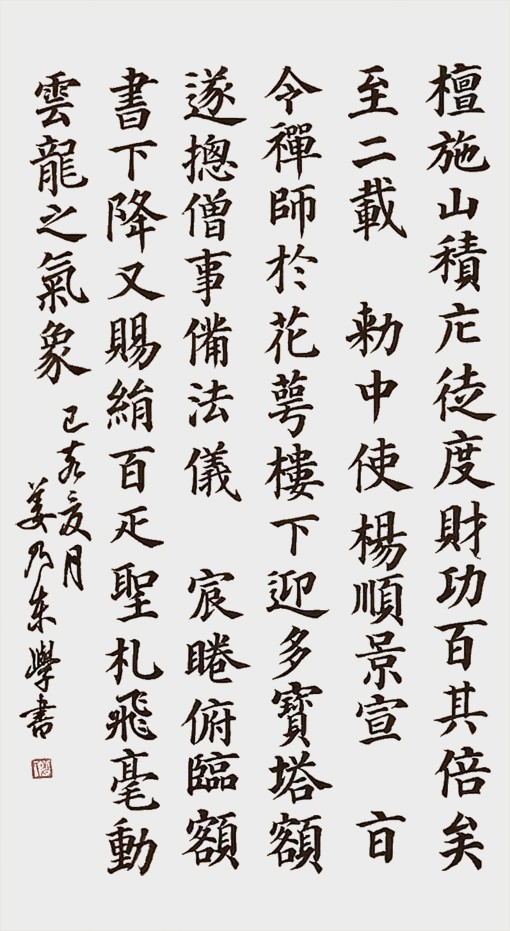 檀施山積庀徒度財功百其倍矣
至二載 勅中使楊順景宣 旨
令禪師於花萼樓下迎多寶塔額
遂摠僧事備法儀 宸睠俯臨額
書下降又賜絹百疋聖札飛毫動
雲龍之氣象
己亥夏月
姜乃東學書